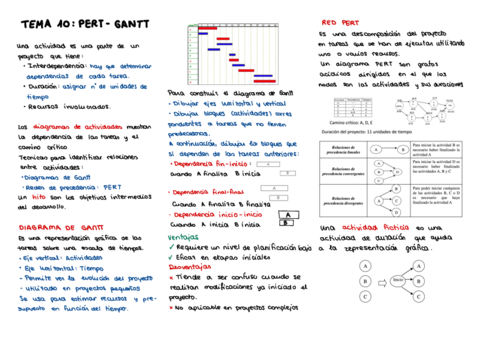 TEMA 10: PERT-GANTT
Una actividad es una parte de un
proyecto que tiene:
• Interdependencia: hay que determinar
dependencias de cada tarea.
• Duración: asignar nº de unidades de
tiempo
• Recursos involucrados.
Los diagramas de actividades muestran
la dependencia de las tareas y el
camino crítico
Tecnicas para identificar relaciones
entre actividades:
• Diagramas de Gantt
• Redes de precedencia: PERT
Un hito son los objetivos intermedios
del desarrollo.
DIAGRAMA DE GANTT
Es una representación gráfica de las
tareas sobre una escala de tiempos.
• Eje vertical: Actividades
• Eje horizontal: Tiempo
• Permite ver la evolución del proyecto
• Utilizado en proyectos pequeños
Se usa para estimar recursos y pre-
supuesto en función del tiempo.
Para construir el diagrama de Gantt
• Dibujar ejes horizontal y vertical
• Dibujar bloques (actividades) corres
pondientes a tareas que no tienen
predecesoras.
A continuación dibujar los bloques que
si dependan de las tareas anteriores:
• Dependencia fin-inicio:
A
B
Cuando A finaliza B inicia
• Dependencia final-final
Cuando A finaliza B finaliza
• Dependencia inicio-inicio
A
B
Cuando A inicia B inicia
Ventajas
✓ Requiere un nivel de planificación bajo
✓ Eficaz en etapas iniciales
Desventajas
× Tiende a ser confuso cuando se
realizan modificaciones ya iniciado el
proyecto.
× No aplicable en proyectos complejos
RED PERT
Es una descomposición del proyecto
en tareas que se han de ejecutar utilizando
uno o varios recursos.
Un diagrama PERT son grafos
acíclicos dirigidos en el que los
nodos son las actividades y sus duraciones
Camino crítico: A, D, E
Duración del proyecto: 11 unidades de tiempo
Relaciones de
precedencia lineales
A
B
Para iniciar la actividad B es
necesario haber finalizado la
actividad A
Relaciones de
precedencia convergentes
A
B
C
D
Para iniciar la actividad D es
necesario haber finalizado
las actividades A, B y C
Relaciones de
precedencia divergentes
A
B
C
D
Para poder iniciar cualquiera
de las actividades B, C o D
es necesario que haya
finalizado la actividad A
Una actividad ficticia es una
actividad de duración que ayuda
a la representación gráfica.
A
B
C
Inicio
A
B
C